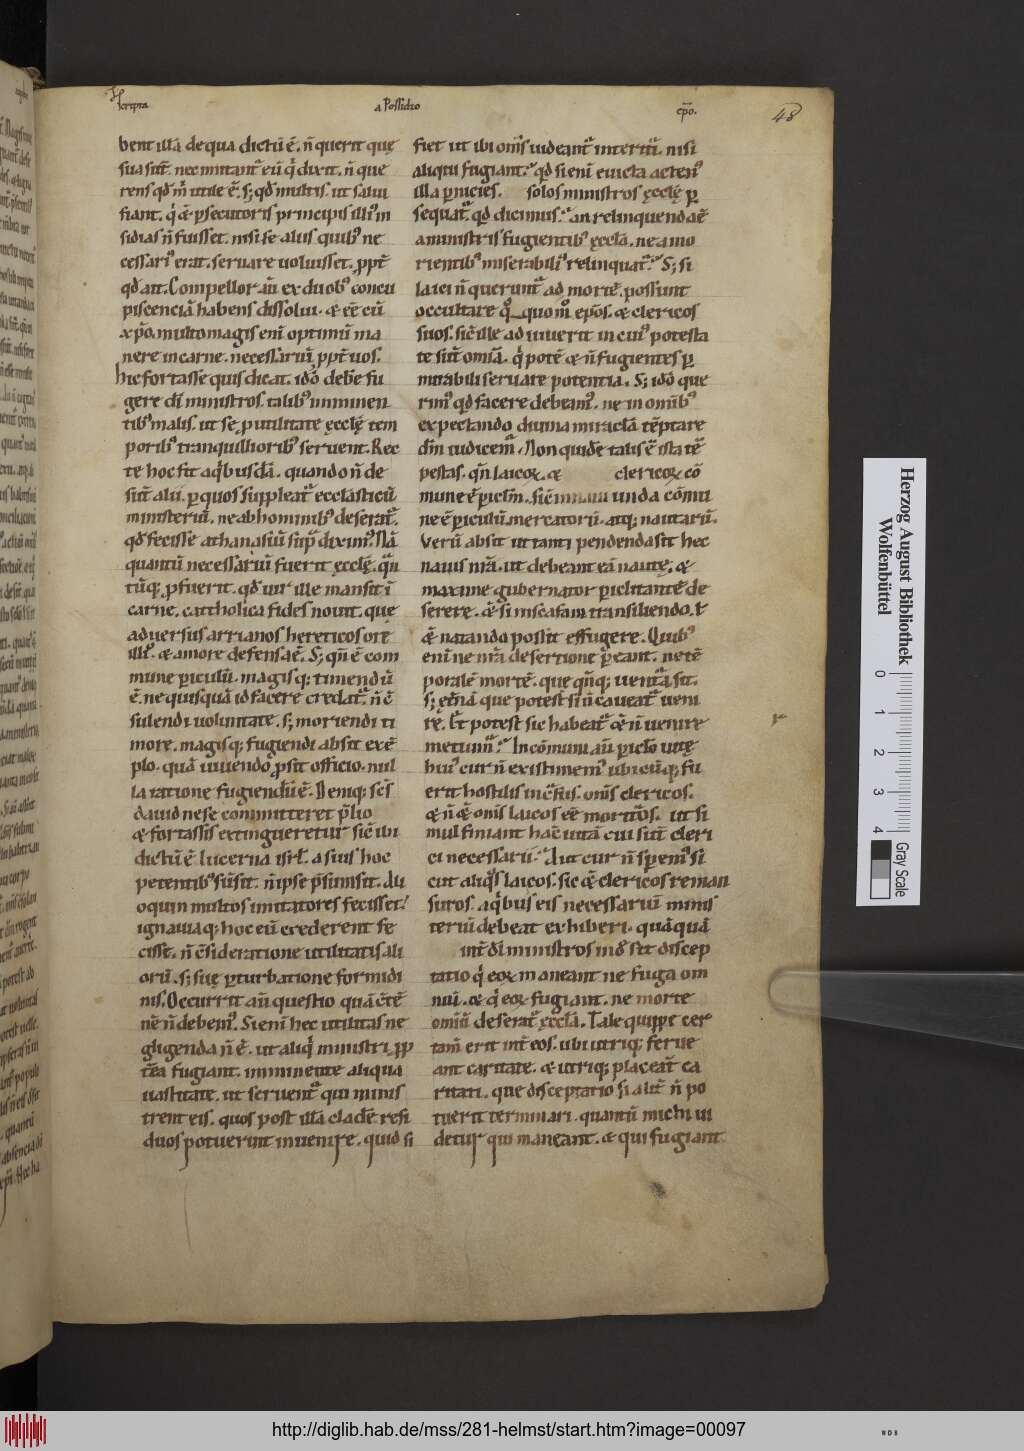 Scripta a Possidio ep̄o. 48
bent illā de qua dictū ē. n̄ querit quę
sua sūt. nec imitant᷑ eū q̇ dixit. n̄ que
rens qd̄ m̄ utile ē. s; qd̄ multis. ut salui
fiant. q̇ & p̄secutoris principis illi᷒ in
sidias n̄ fuisset. nisi se aliis quib᷒ ne
cessari᷒ erat. seruare uoluisset. ꝓpt̄
qd̄ ait. Compellor aū ex duob᷒ concu
piscenciā habens dissolui. & eē cū
xp̄o. multo magis eni optimū ma
nere in carne. necessariū ꝓpt̄ uos.
hic fortasse quis dicat. idō deb̄e fu
gere dī ministros. talib᷒ imminen
tib᷒ malis. ut se ꝓ utilitate ęcclę̄ tem
porib᷒ tranquillorib᷒ seruent. Rec
te hoc fit aq̇busdā. quando n̄ de
sūt alii. ꝑ quos suppleat᷑ ecclāsticū
ministeriū. ne ab hominib᷒ deserat᷑.
qd̄ fecisse athanasiū sup̄ dixim᷒. Nā
quantū necessariū fuerit ęcclę̄. q̄n
tūq; ꝓfuerit. qd̄ uir ille mansit ī
carne. cattholica fides nouit. que
aduersus arrianos hereticos ore
illi᷒. & amore defensa ē. S; q̄n ē com
mune piculū. magisq; timendū
ē. ne quisquā id facere credat᷑. n̄ c̄
sulendi uoluntate. s; moriendi ti
more. magisq; fugiendi absit exē
plo. quā uiuendo ꝓsit officio. nul
la ratione fugiendū ē. Deniq; sc̄s
dauid ne se committeret p̄lio
& fortassis extingueretur sic̄ ibi
dictū ē lucerna isrl̄. a suis hoc
petentib᷒ sūsit. n̄ ipse p̄sumsit. Ali
oquin multos imitatores fecisset
ignauiaq; hoc eū crederent fe
cisse. n̄ c̄sideratione utilitatis ali
orū. s; suę ꝑturbatione formidi
nis. Occurrit aū questio quā c̄tē
nē n̄ debem᷒. Si eni hec utilitas ne
gligenda n̄ ē. ut aliq̇ ministri ꝓp
tea fugiant. imminente aliqua
uastitate. ut seruent᷑ qui minis
trent eis. quos post illā cladē resi
duos potuerint inuenire. quid si
fiet ut ibi om̄s uideant᷑ interitu. nisi
aliqui fugiant. qd̄ si eni euicta acten᷒
illa ꝑnicies. solos ministros ęcclę ꝑ
sequat᷑. qd̄ dicimus. an relinquenda ē
a ministris fugientib᷒ ęcclā. ne a mo
rientib᷒ miserabili᷒ relinquat᷑. S; si
laici n̄ querunt᷑ ad mortē. possunt
occultare q̊quo m̊ ep̄os. & clericos
suos. sic̄ ille adiuuerit in cui᷒ potesta
te sūt omīa. q̇ potē & n̄ fugientes ꝑ
mirabili seruare potentia. S; idō que
rim᷒ qd̄ facere debeam᷒. ne in omīb᷒
expectando diuina miraclā tēptare
dn̄m iudicem᷑. Non quidē talis ē ista tē
pestas. q̄n laicoꝝ. & clericoꝝ cō
mune ē piclm̄. sic̄ unda cōmu
ne ē piculū. mercatorū. atq; nautarū.
Verū absit ut tanti pendenda sit hec
nauis nr̄a. ut debeant eā nautę. &
maxime gubernator piclitantē de
serere. & si in scafam transiliendo. t̄
& natando possit effugere. Quib᷒
eni ne nr̄a desertione pereant. n tē
poralē mortē. que qn̄q; uentura sit.
s; et̄nā que potest si n̄ caueat᷑ ueni
re. Et potest sic habeat᷑ & n̄ uenire
metuim᷒. In cōmuni aū piclo uitę
hui᷒ cur n̄ existimem᷒ ubicūq; fu
erit hostilis inc̄rsus. om̄s clericos.
& n̄ & om̄s laicos eē mortuos. ut si
mul finiant hāc uitā cui sūt cleri
ci necessarii. Aut cur n̄ sperem᷒ si
cut aliq̇s laicos. sic & clericos reman
suros. aq̇bus eis necessariū minis
teriū debeat exhiberi. quāquā
int̄ dī ministros m̊ sit discep
tatio q̇ eoꝝ maneant ne fuga om
niū. & q̇ eoꝝ fugiant. ne morte
omīū deserat᷑ ęcclā. Tale quippe cer
tam̄ erit int̄ eos. ubi utriq; ferue
ant caritate. & utriq; placeāt ca
ritati. que disceptatio si alit̄ n̄ po
tuerit terminari. quantū michi ui
detur qui maneant. & qui fugiant
Herzog August Bibliothek
Wolfenbüttel
0 1 2 3 4
Gray Scale
http://diglib.hab.de/mss/281-helmst/start.htm?image=00097